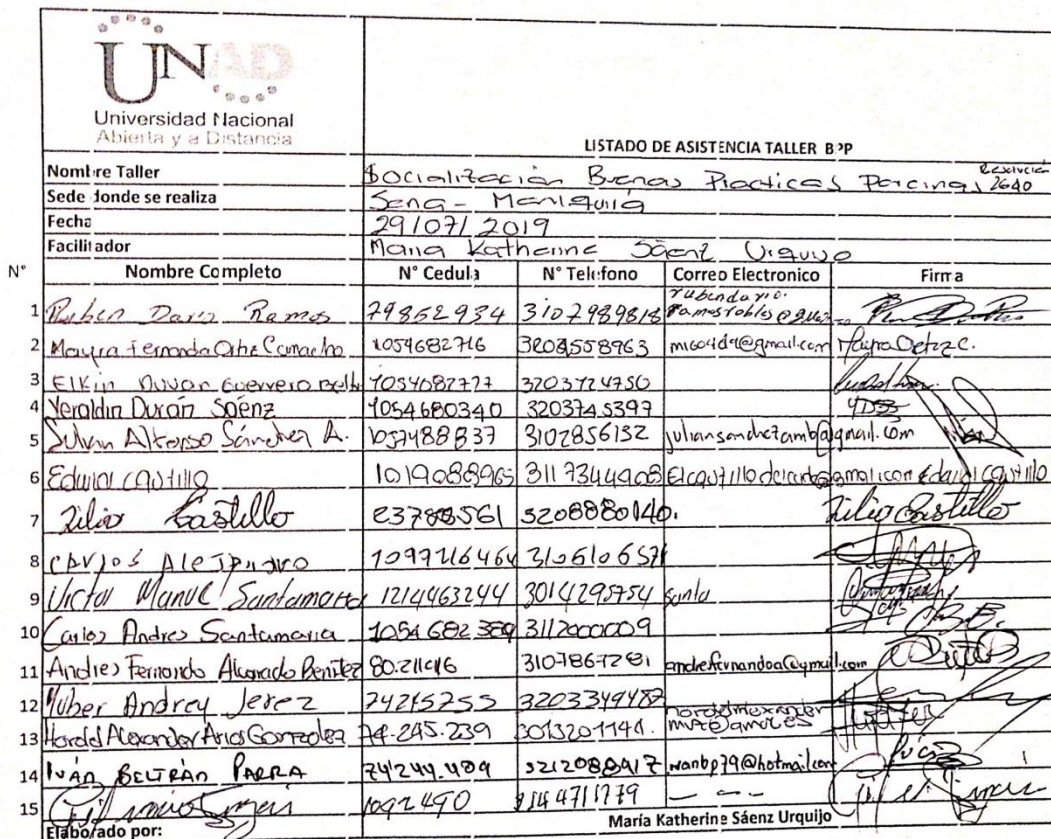 UNAD
Universidad Nacional
Abierta y a Distancia
LISTADO DE ASISTENCIA TALLER BPP
Nombre Taller Socialización Buenas Practicas Porcinas Resolución 2640
Sede donde se realiza Sena -
Fecha 29/07/2019
Facilitador Maria Katherine Sáenz Urquijo
N° Nombre Completo N° Cedula N° Telefono Correo Electronico Firma
1 Ruben Dario Ramos 79852934 3107989818 rubendario.
2 Mayra Fernanda Ortiz Camacho 1054682716 3208558963 Mayra Ortiz C.
3 Elkin Duvan Guerrero 1054682727 3203724750
4 Yeraldin Durán Sáenz 1054680340 3203745397 YDS
5 Julian Alfonso Sánchez A. 1057488837 3102856152 juliansanchezamb@gmail.com
6 Edwin Castillo 1019088965 3117344908 Edwin Castillo
7 Zilia Castillo 23788561 3208880140. Zilia Castillo
8 Carlos Alejandro 1097216464 310610657
9 Victor Manuel Santamaria 1214463244 3014295754 santa
10 Carlos Andres Santamaria 1054682389 3112000009
11 Andres Fernando Alvarado Benitez 3107867281 andrefernandoa@gmail.com
12 Yuber Andrey Jerez 74245755 3203349487
13 Harold Alexander Arias Gonzalez 74.245.239 3013201144.
14 Iván BELTRÁN PARRA 74244.489 3212088917 ivanbp79@hotmail.com
15 1092490
Elaborado por: María Katherine Sáenz Urquijo